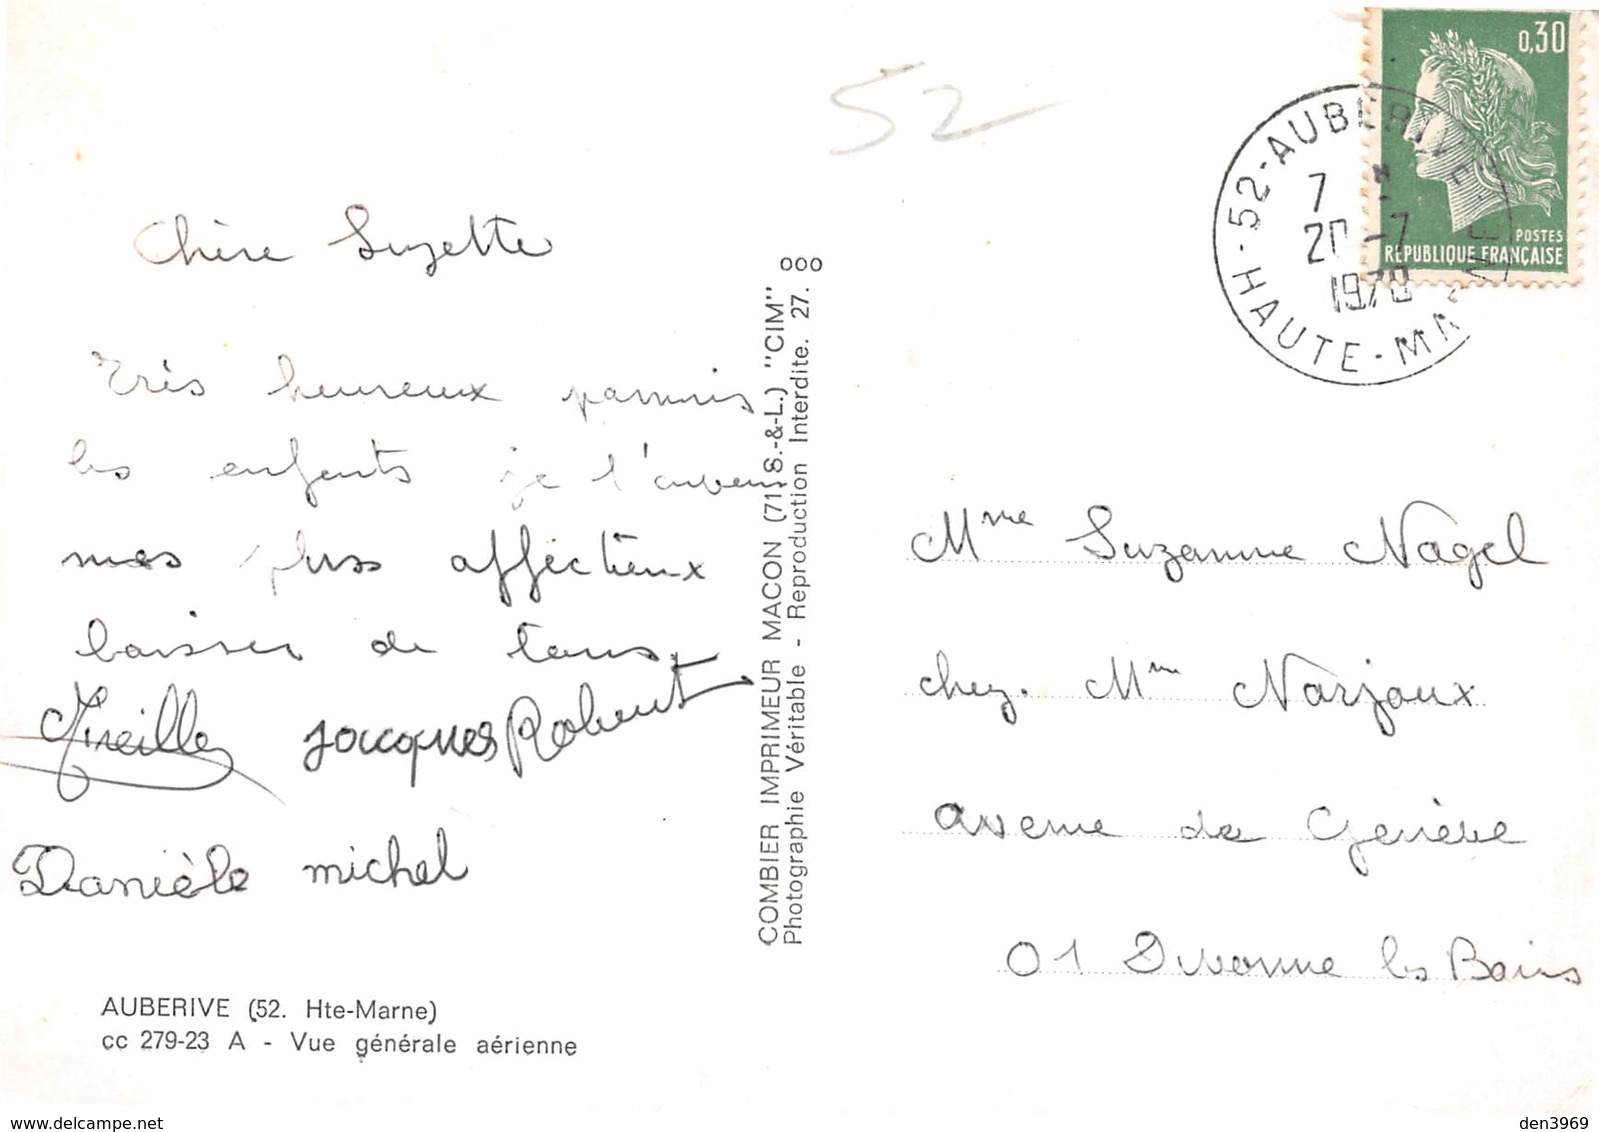 52
Chère Suzette
Très heureux parmis
les enfants je t'envoie
mes plus affectieux
baiser de tous
Mireille Jacques Robert
Danièle michel
AUBERIVE (52. Hte-Marne)
cc 279-23 A - Vue générale aérienne
COMBIER IMPRIMEUR MACON (71 S.-&-L.) "CIM"
Photographie Véritable - Reproduction Interdite. 27. 000
0,30
POSTES
REPUBLIQUE FRANÇAISE
52-AUBERIVE
7 H
20-7
1970
HAUTE-MARNE
Mme Suzanne Nagel
chez. Mme Narjoux
avenue de Genève
01 Divonne les Bains
den3969